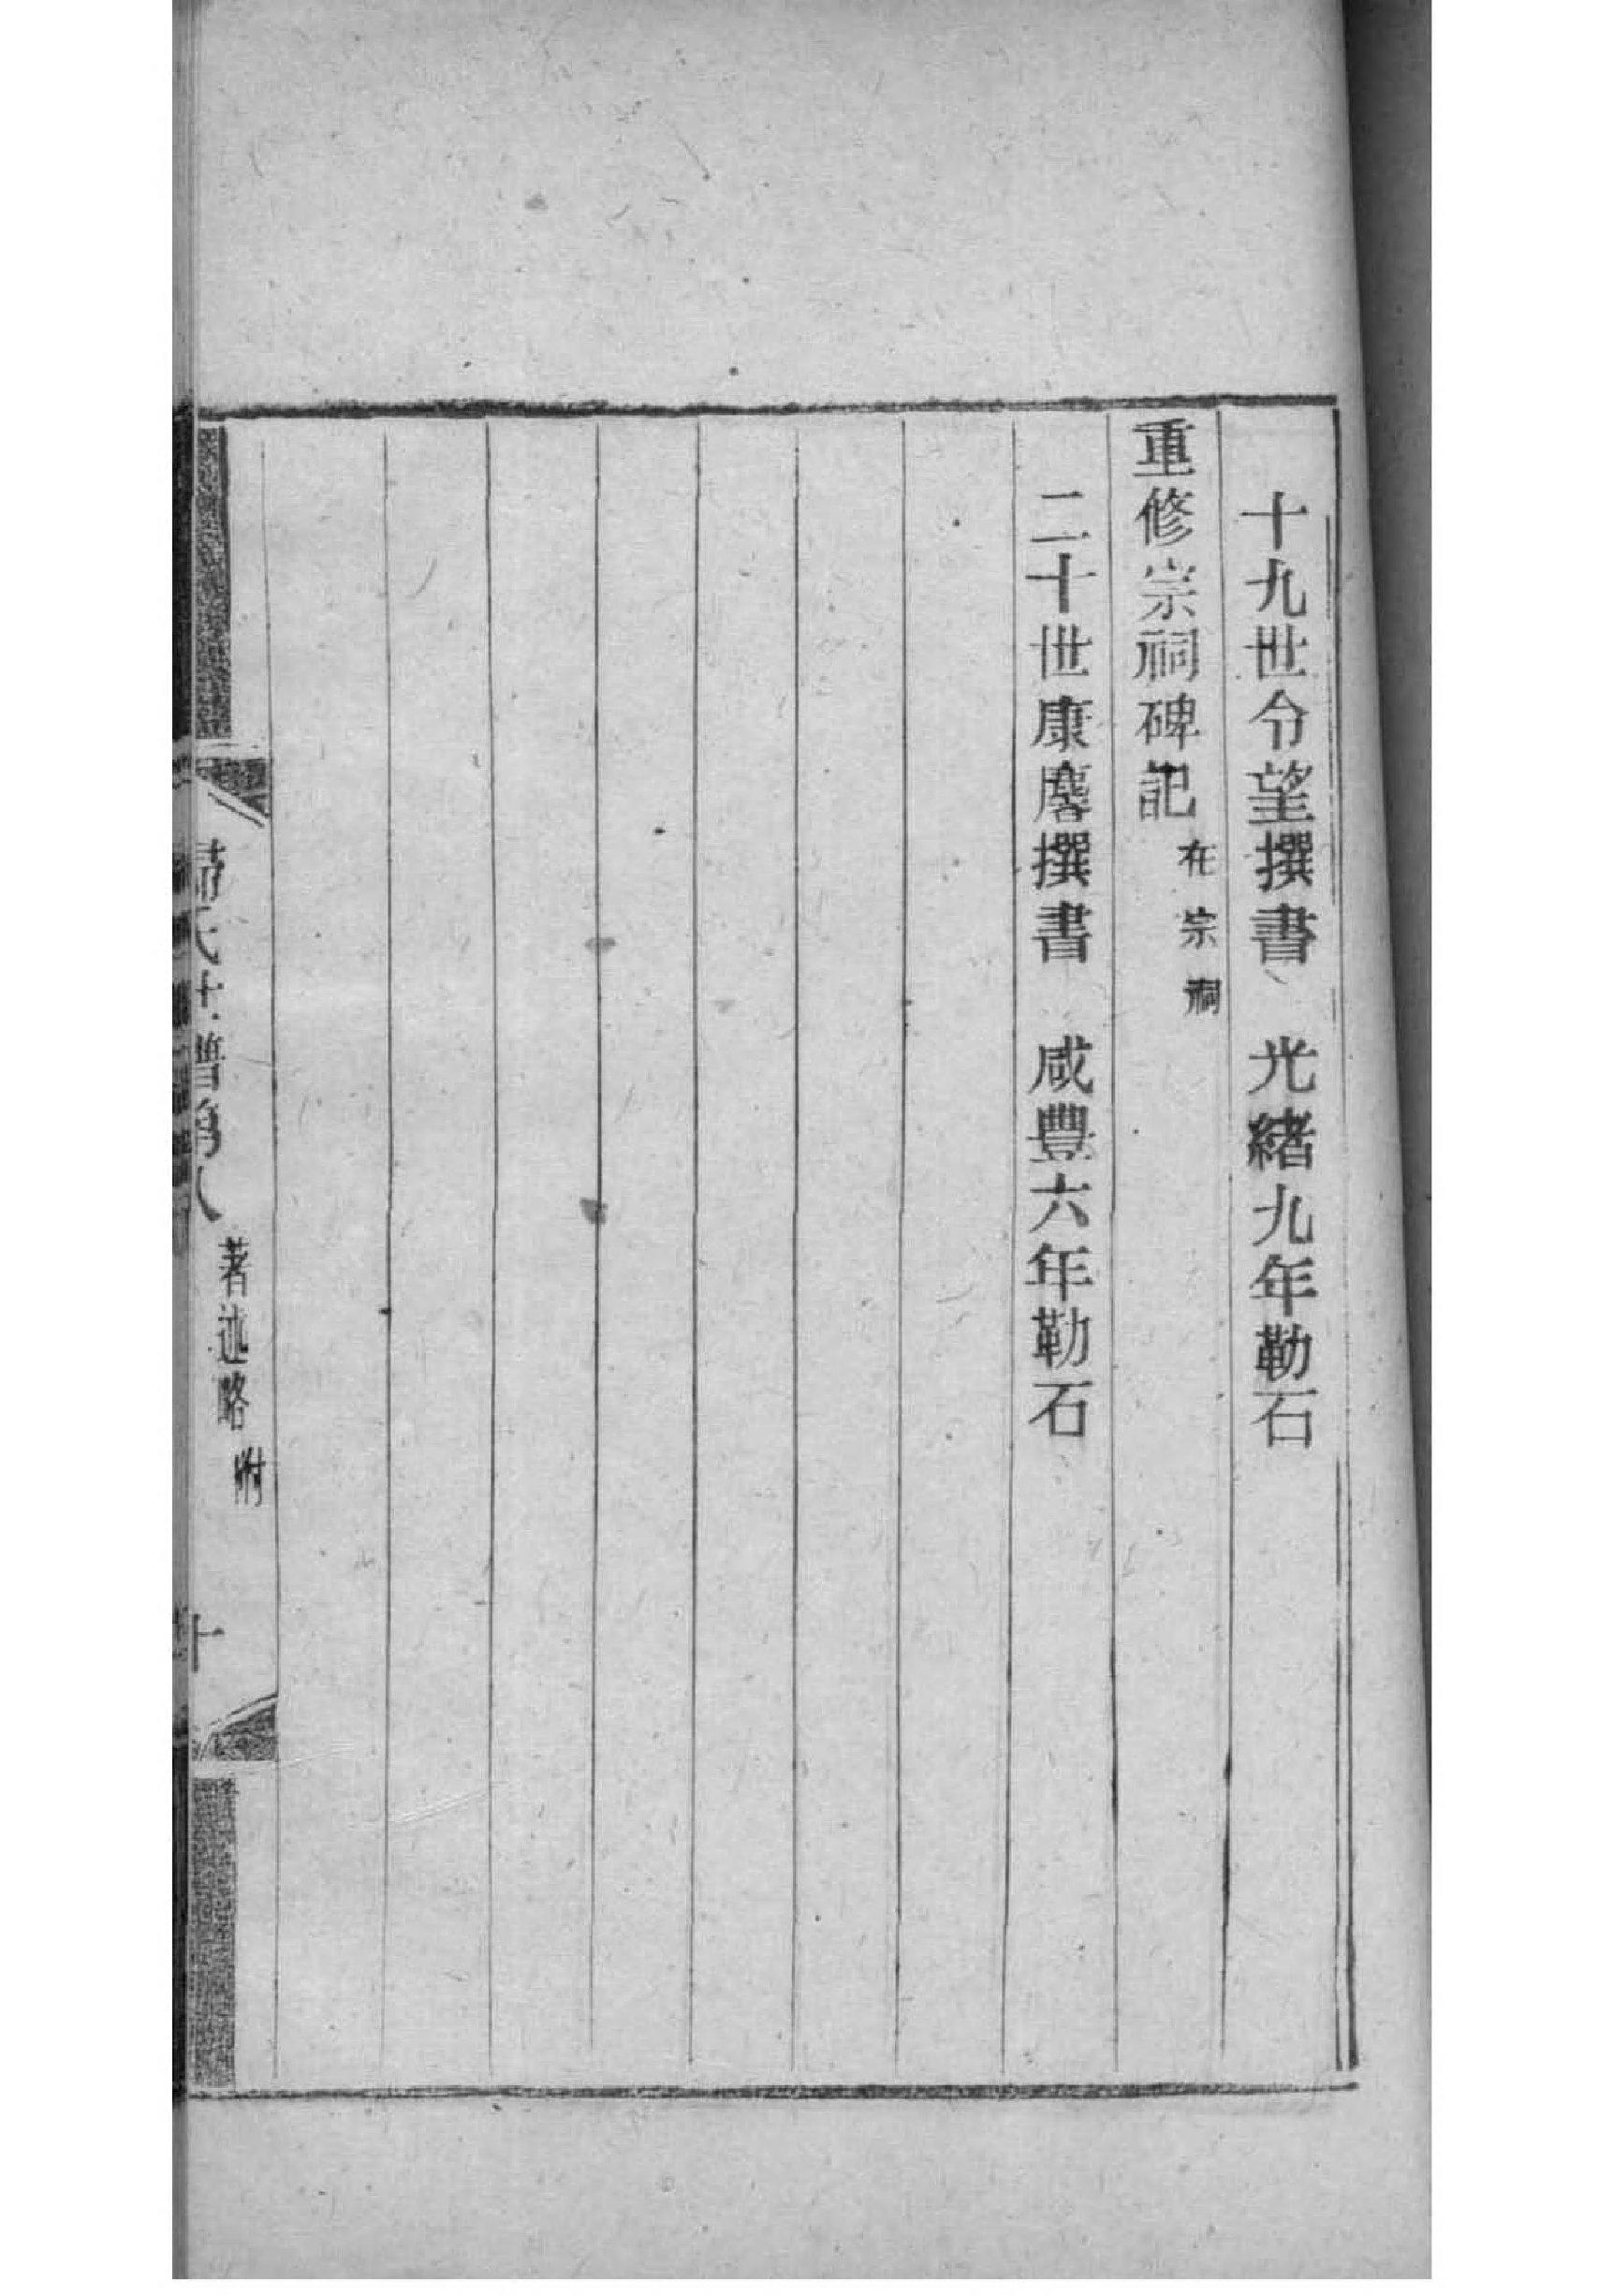 十九世令望撰書　光緒九年勒石
重修宗祠碑記 在宗祠
二十世康麐撰書　咸豐六年勒石
歸氏世譜第八 著述略 附 十